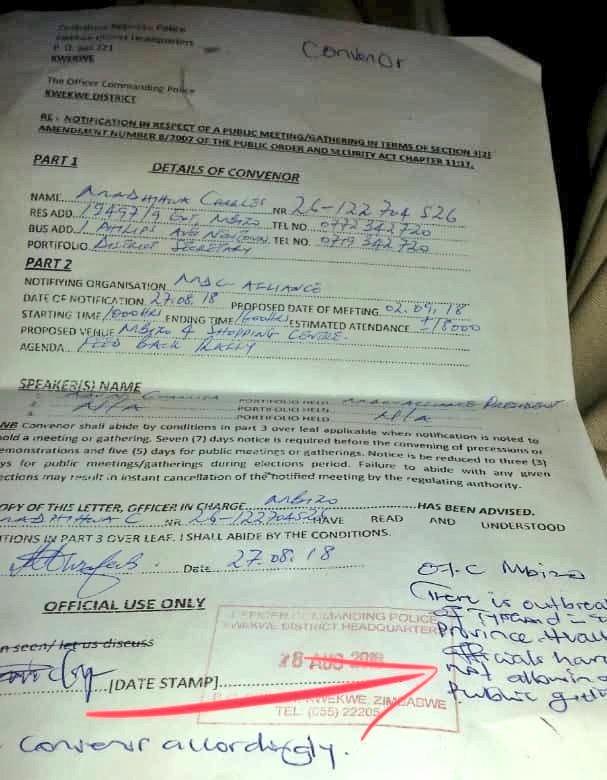 Zimbabwe Republic Police
Kwekwe District Headquarters
P. O. Box 221
KWEKWE
Convenor
The Officer Commanding Police
KWEKWE DISTRICT
RE: NOTIFICATION IN RESPECT OF A PUBLIC MEETING/GATHERING IN TERMS OF SECTION
AMENDMENT NUMBER 8/2007 OF THE PUBLIC ORDER AND SECURITY ACT CHAPTER 11:17.
PART 1 DETAILS OF CONVENOR
NAME Madhihwa Charles NR 26-122704 S26
RES ADD 19497/9 Mbizo TEL NO 0772 342 720
BUS ADD 1 Philips Ave Newtown TEL NO. 0719 342 720
PORTIFOLIO District Secretary
PART 2
NOTIFIYING ORGANISATION MDC ALLIANCE
DATE OF NOTIFICATION 27.08.18 PROPOSED DATE OF MEETING 02.09.18
STARTING TIME 1000HRS ENDING TIME 1600HRS ESTIMATED ATENDANCE ±18000
PROPOSED VENUE Mbizo 4 SHOPPING CENTRE.
AGENDA FEED BACK RALLY
SPEAKER(S) NAME
CHAMISA PORTIFOLIO HELD MDC ALLIANCE PRESIDENT
N/A PORTIFOLIO HELD N/A
PORTIFOLIO HELD
NB Convenor shall abide by conditions in part 3 over leaf applicable when notification is noted to
hold a meeting or gathering. Seven (7) days notice is required before the convening of precessions or
emonstrations and five (5) days for public meetings or gatherings. Notice is be reduced to three (3)
ys for public meetings/gatherings during elections period. Failure to abide with any given
ections may result in instant cancellation of the notified meeting by the regulating authority.
OPY OF THIS LETTER, OFFICER IN CHARGE Mbizo HAS BEEN ADVISED.
MADHIHWA C NR 26-122704S26 HAVE READ AND UNDERSTOOD
ITIONS IN PART 3 OVER LEAF. I SHALL ABIDE BY THE CONDITIONS.
Date 27.08.18
OFFICIAL USE ONLY
n seen/ let us discuss
[DATE STAMP]
OFFICER COMMANDING POLICE
KWEKWE DISTRICT HEADQUARTERS
28 AUG 2018
KWEKWE, ZIMBABWE
TEL: (055) 22205
O.I.C Mbizo
There is outbrea
of Typhoid
Province. Heal
officials hav
not allowing
Public gath
Convenor accordingly.